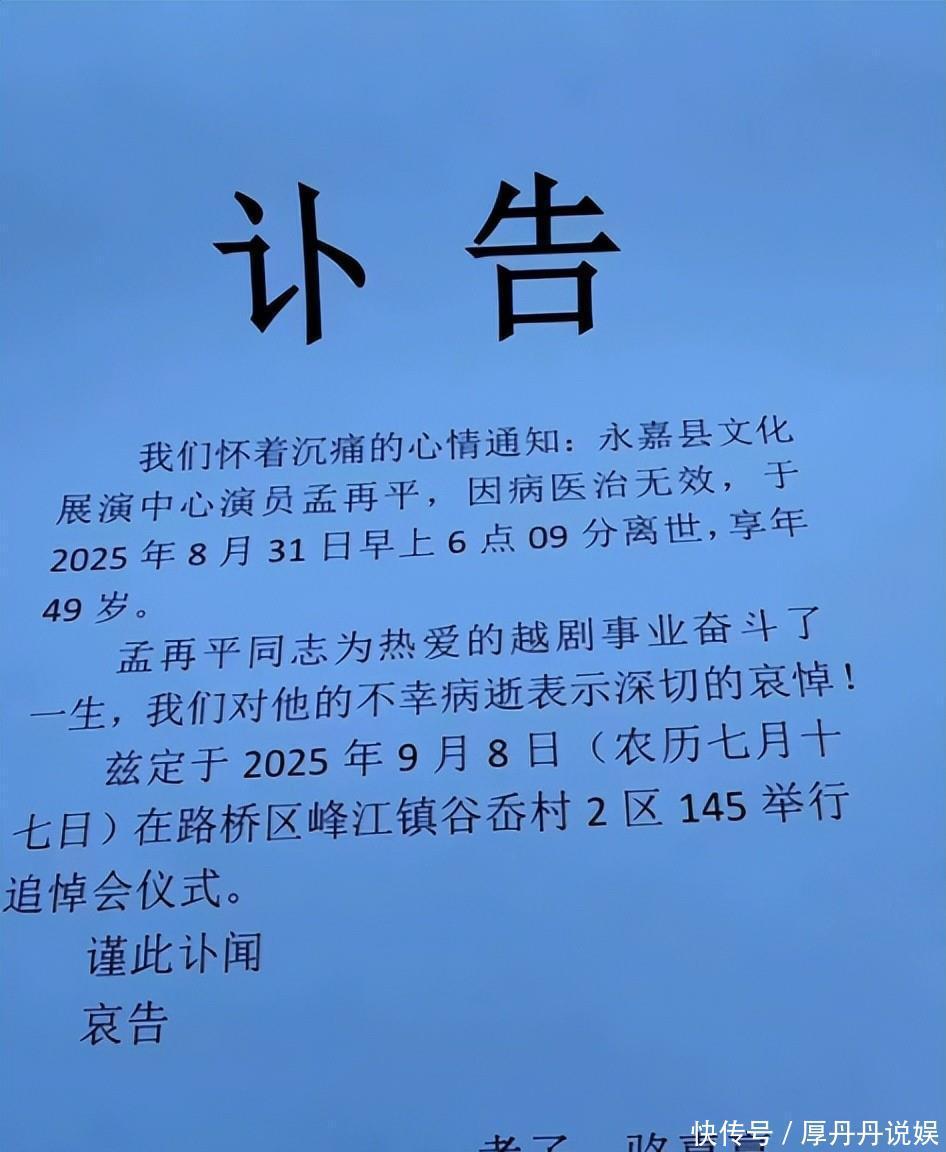 讣告
我们怀着沉痛的心情通知：永嘉县文化
展演中心演员孟再平，因病医治无效，于
2025 年 8 月 31 日早上 6 点 09 分离世，享年
49 岁。
孟再平同志为热爱的越剧事业奋斗了
一生，我们对他的不幸病逝表示深切的哀悼！
兹定于 2025 年 9 月 8 日（农历七月十
七日）在路桥区峰江镇谷岙村 2 区 145 举行
追悼会仪式。
谨此讣闻
哀告
快传号／厚丹丹说娱